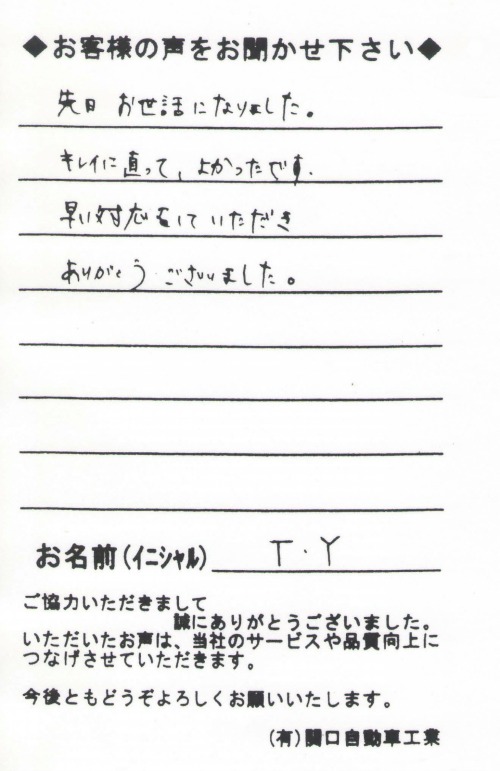 ◆お客様の声をお聞かせ下さい◆
先日 お世話になりました。
キレイに直って、よかったです。
早い対応をしていただき
ありがとうございました。
お名前(イニシャル) T・Y
ご協力いただきまして
誠にありがとうございました。
いただいたお声は、当社のサービスや品質向上に
つなげさせていただきます。
今後ともどうぞよろしくお願いいたします。
(有)関口自動車工業